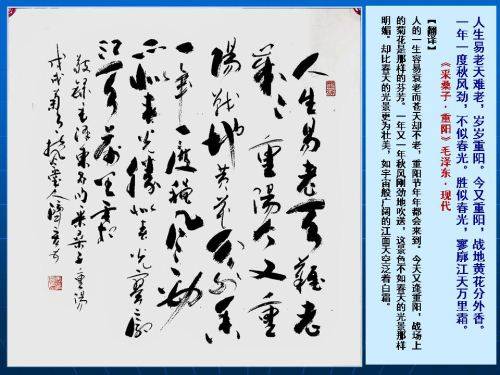 人生易老天难老，岁岁重阳。今又重阳，战地黄花分外香。
一年一度秋风劲，不似春光。胜似春光，寥廓江天万里霜。
《采桑子·重阳》毛泽东·现代
【翻译】
人的一生容易衰老而苍天却不老，重阳节年年都会来到。今天又逢重阳，战场上
的菊花是那样的芬芳。一年又一年秋风刚劲地吹送，这景色不如春天的光景那样
明媚。却比春天的光景更为壮美，如宇宙般广阔的江面天空泛着白霜。
人生易老天難老
歲々重陽今又重
陽戰地黄花分外香
一年一度秋风劲
不似春光勝似春光寥廓
江天萬里霜